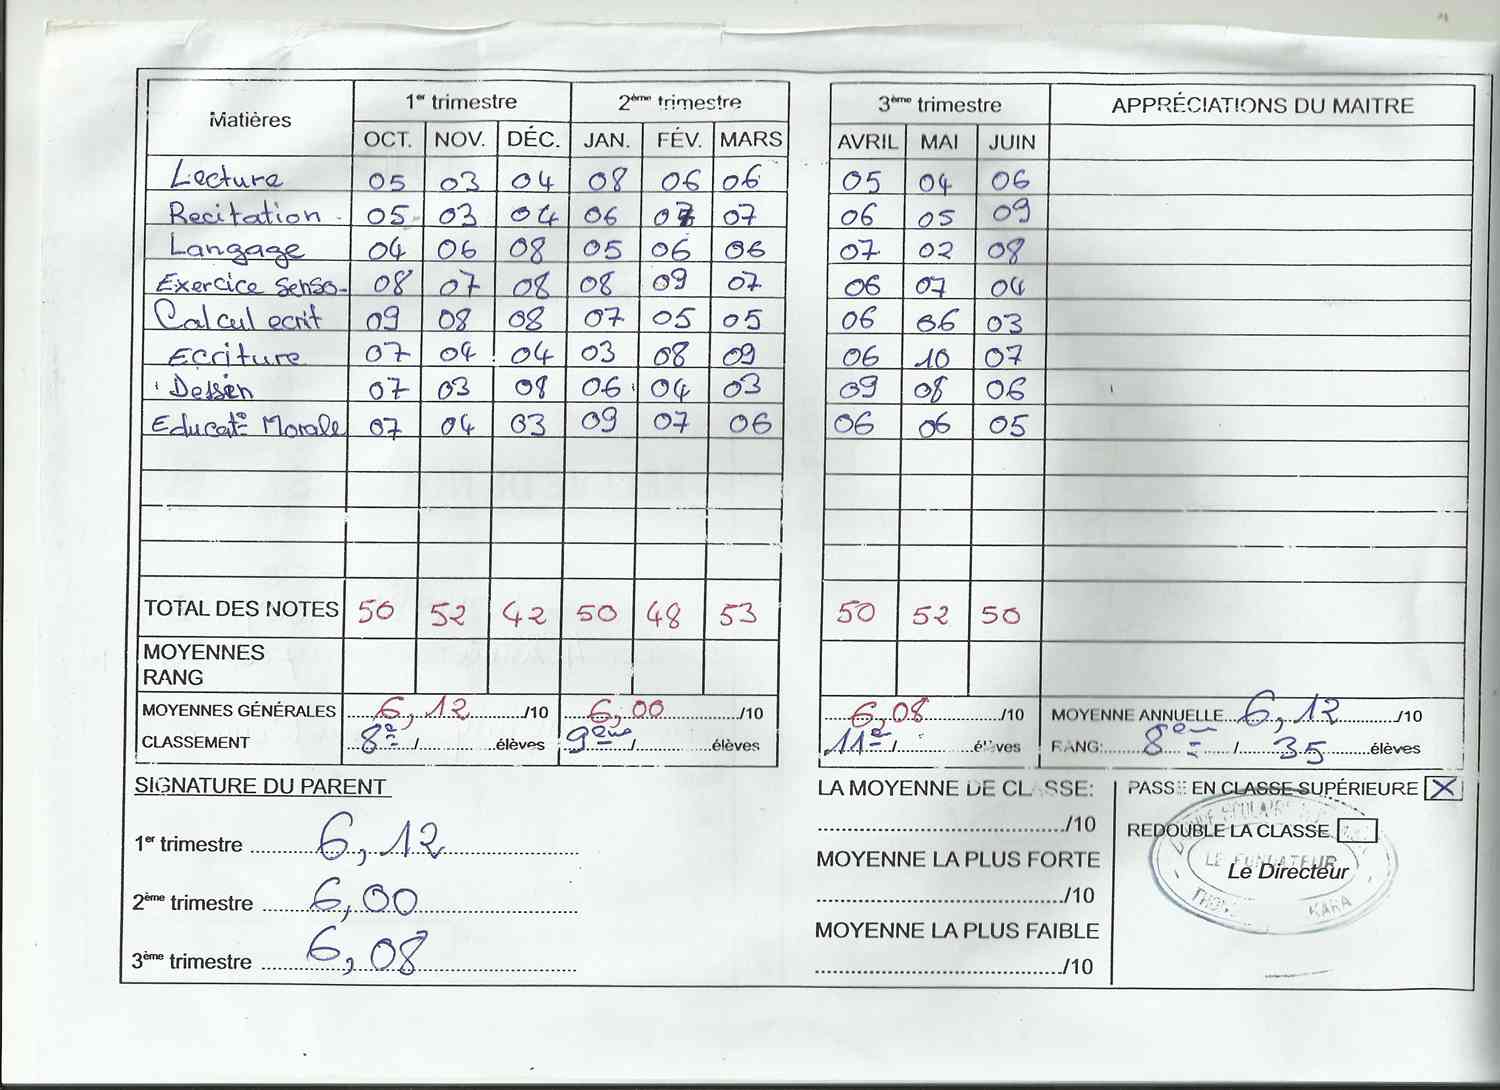 Matières 1er trimestre 2ème trimestre 3ème trimestre APPRÉCIATIONS DU MAITRE
OCT. NOV. DÉC. JAN. FÉV. MARS AVRIL MAI JUIN
Lecture 05 03 04 08 06 06 05 04 06
Recitation 05 03 04 06 07 07 06 05 09
Langage 04 06 08 05 06 06 07 02 08
Exercice senso- 08 07 08 08 09 07 06 07 04
Calcul ecrit 09 08 08 07 05 05 06 06 03
Ecriture 07 04 04 03 08 09 06 10 07
Dessin 07 03 08 06 04 03 09 08 06
Educat° Morale 07 04 03 09 07 06 06 06 05
TOTAL DES NOTES 50 52 42 50 48 53 50 52 50
MOYENNES
RANG
MOYENNES GÉNÉRALES 6,12 /10 6,00 /10 6,08 /10 MOYENNE ANNUELLE 6,12 /10
CLASSEMENT 8e / élèves 9ème / élèves 11e / élèves RANG: 8ème / 35 élèves
SIGNATURE DU PARENT
1er trimestre 6,12
2ème trimestre 6,00
3ème trimestre 6,08
LA MOYENNE DE CLASSE:
/10
MOYENNE LA PLUS FORTE
/10
MOYENNE LA PLUS FAIBLE
/10
PASSE EN CLASSE SUPÉRIEURE X
REDOUBLE LA CLASSE
LE FONDATEUR
Le Directeur
KARA